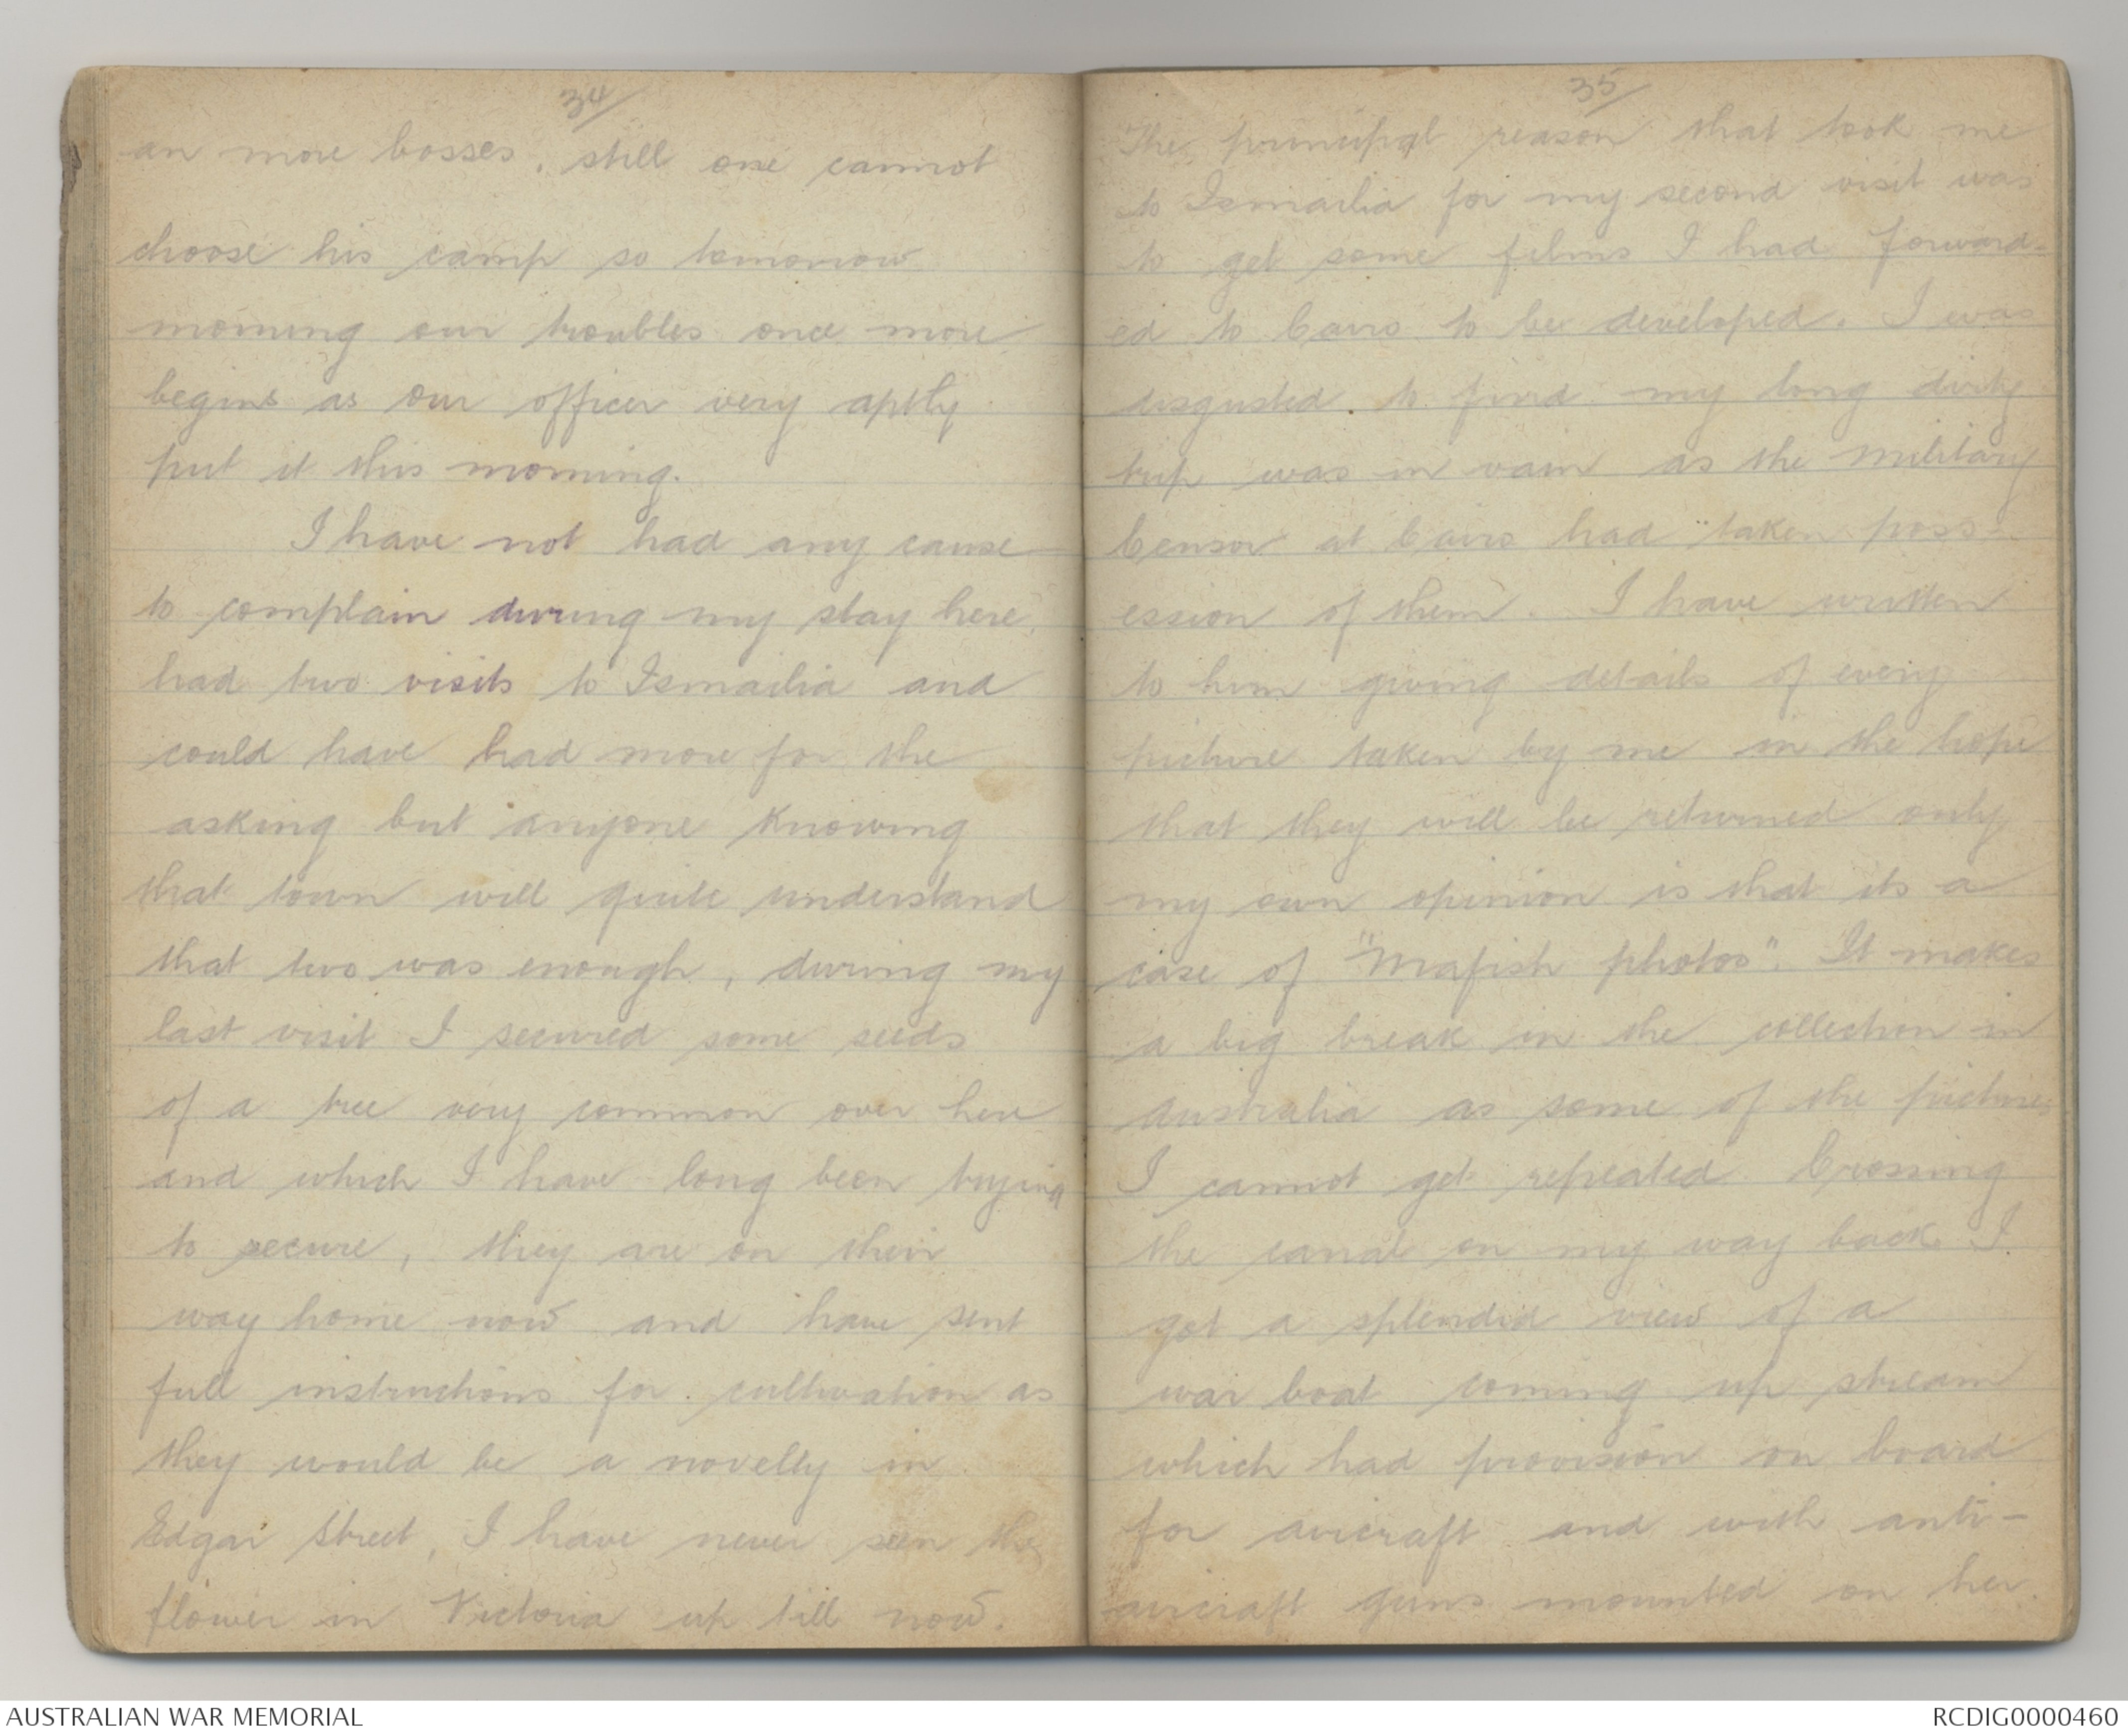 34
an more bosses, still one cannot
choose his camp so tomorrow
morning our troubles once more
begins as our officer very aptly
put it this morning.
I have not had any cause
to complain during my stay here,
had two visits to Ismailia and
could have had more for the
asking but anyone knowing
that town will quite understand
that two was enough, during my
last visit I secured some seeds
of a tree very common over here
and which I have long been trying
to secure, they are on their
way home now and have sent
full instructions for cultivation as
they would be a novelty in
Edgar Street, I have never seen the
flower in Victoria up till now.
35
The principal reason that took me
to Ismailia for my second visit was
to get some films I had forward-
ed to Cairo to be developed. I was
disgusted to find my long dirty
trip was in vain as the Military
Censor at Cairo had taken poss-
ession of them. I have written
to him giving details of every
picture taken by me in the hope
that they will be returned only
my own opinion is that its a
case of "Mafish photos". It makes
a big break in the collection in
Australia as some of the pictures
I cannot get repeated. Crossing
the canal on my way back I
got a splendid view of a
war boat coming up stream
which had provision on board
for aircraft and with anti-
aircraft guns mounted on her.
AUSTRALIAN WAR MEMORIAL
RCDIG0000460